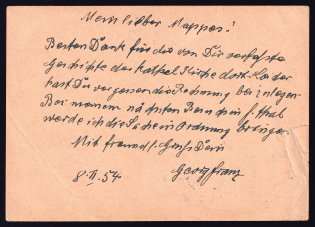 Mein lieber Mappes!
Besten Dank für die von Dir verfasste
Geschichte der kathol. Kirche dort. Leider
hast Du vergessen die Rechnung beizulegen.
Bei meinem nächsten Besuch in
werde ich die Sache in Ordnung bringen.
Mit freundl. Gruß Dein
8. II. 54 Georg Franz